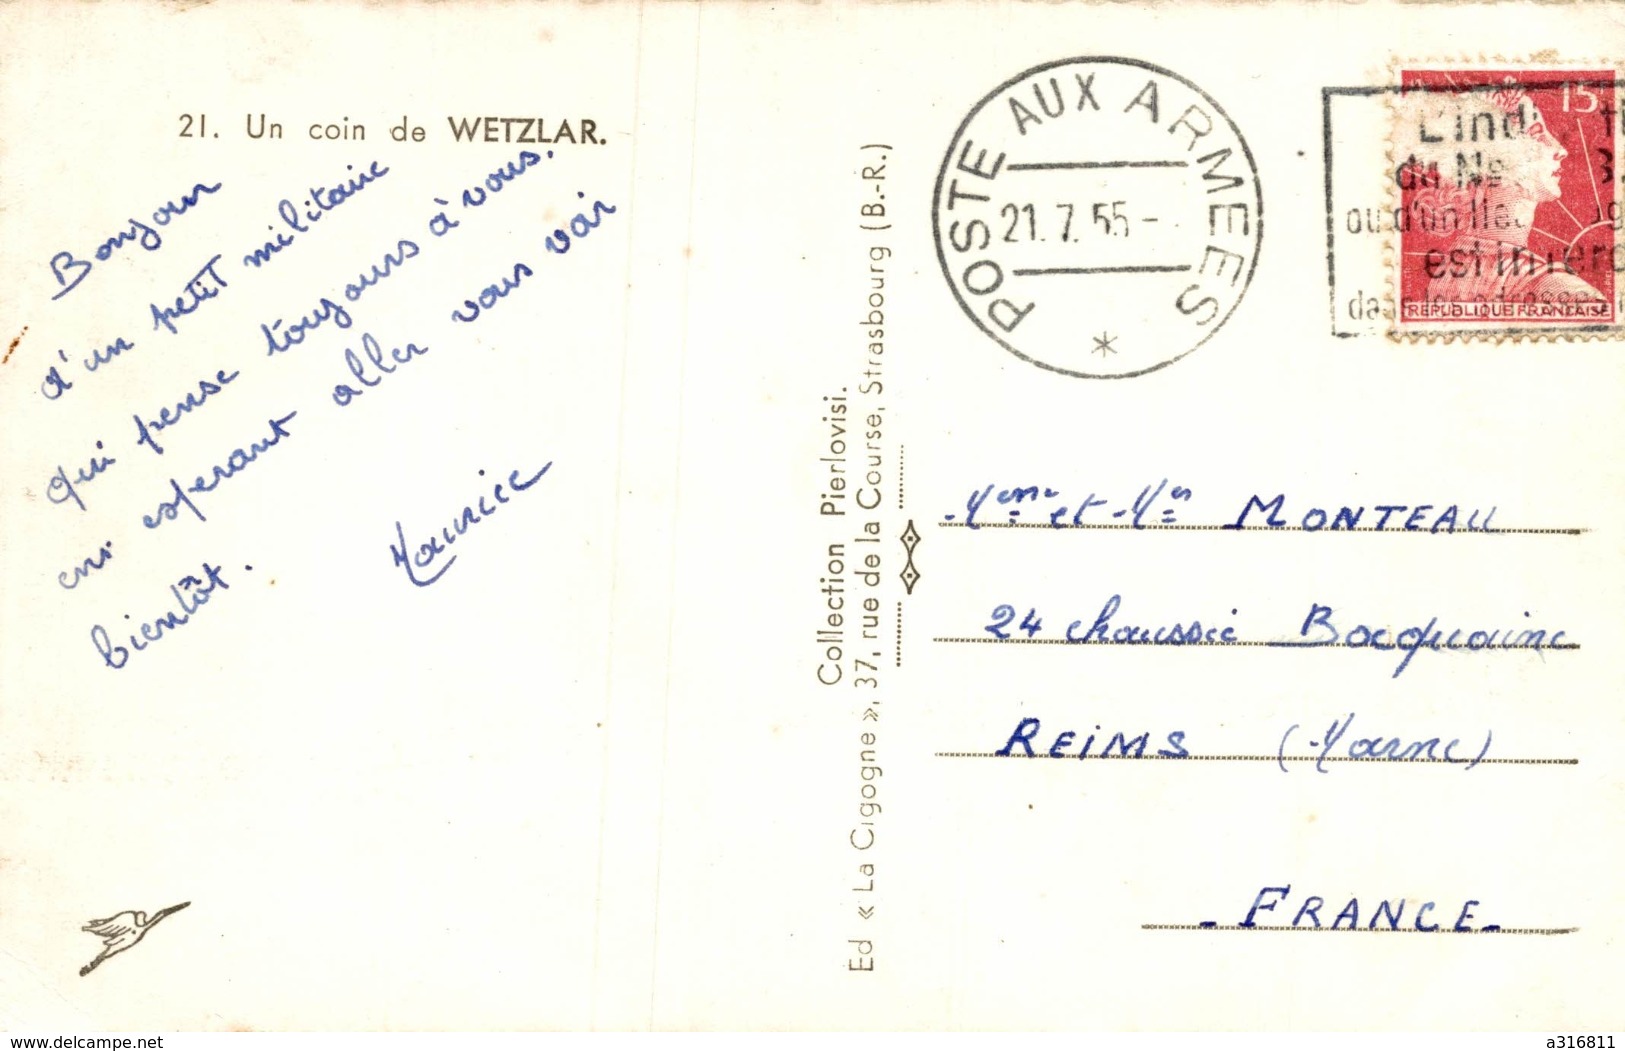 21. Un coin de WETZLAR.
Bonjour
d'un petit militaire
qui pense toujours à vous.
en esperant aller vous voir
bientôt.
Maurice
Collection Pierlovisi.
Ed « La Cigogne », 37, rue de la Course, Strasbourg (B.-R.)
POSTE AUX ARMEES
21.7.55-
*
15F
REPUBLIQUE FRANCAISE
du No
est inter
Mme et Mr MONTEAU
24 chaussée Bocquaine
REIMS (Marne)
- FRANCE -
www.delcampe.net
a316811